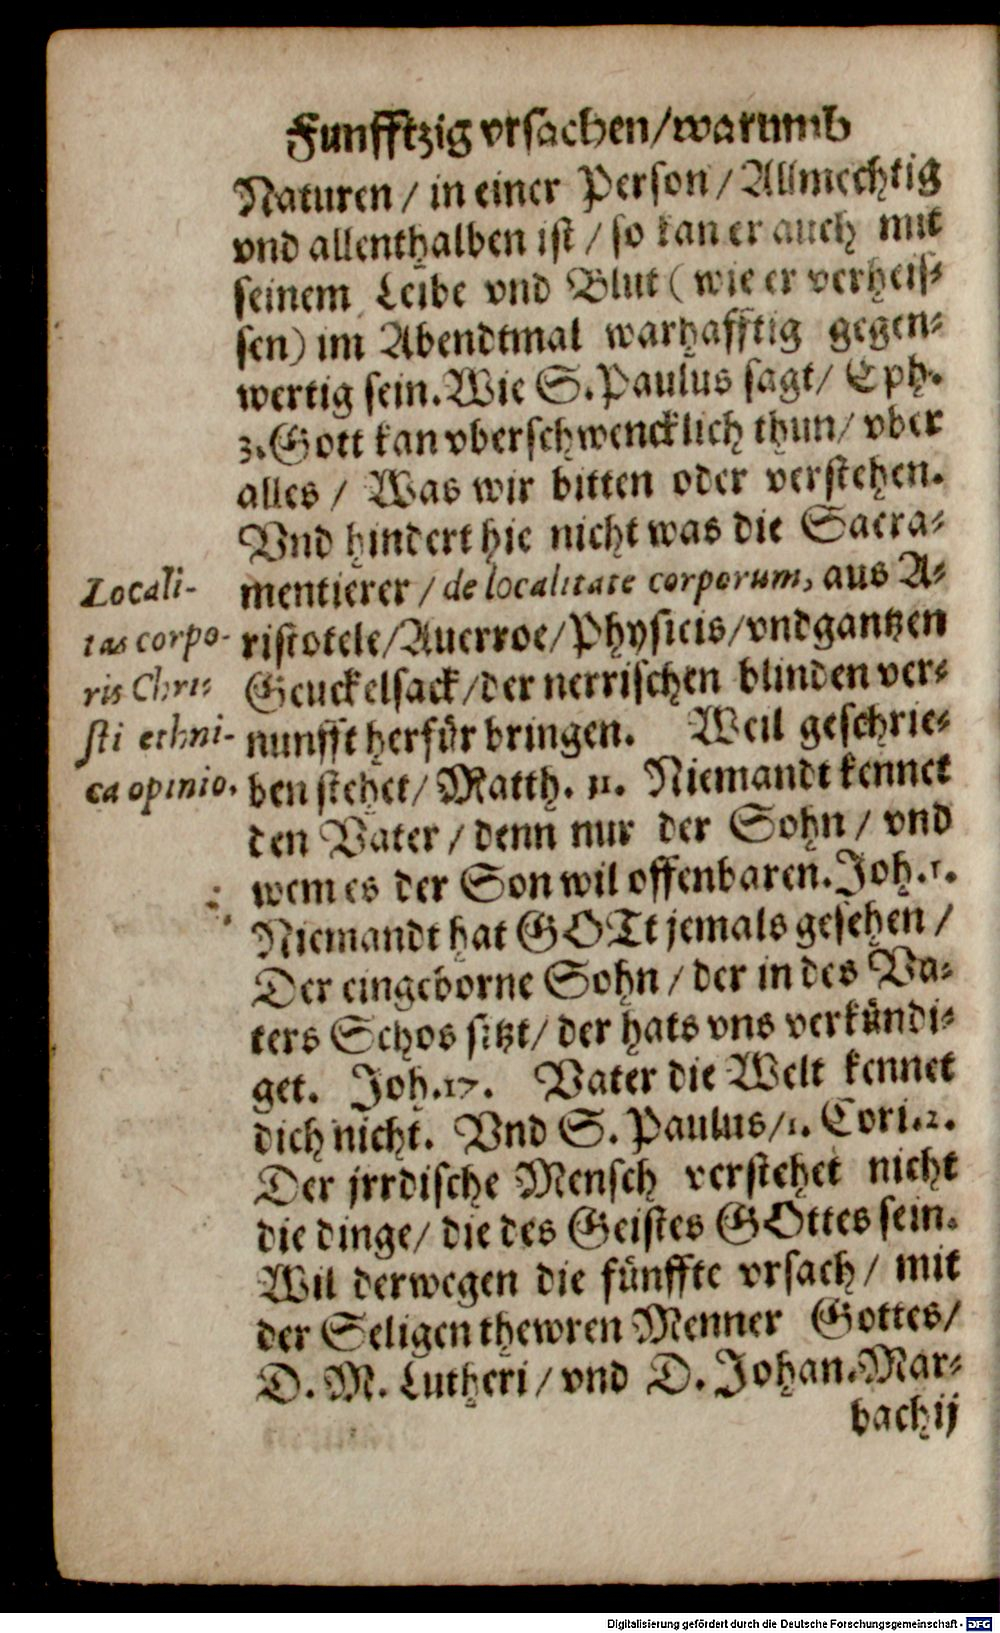 Funfftzig vrsachen/warumb
Naturen / in einer Person / Allmechtig
vnd allenthalben ist / so kan er auch mit
seinem Leibe vnd Blut ( wie er verheis-
sen) im Abendtmal warhafftig gegen-
wertig sein. Wie S. Paulus sagt/ Eph.
3. Gott kan vberschwencklich thun/ vber
alles / Was wir bitten oder verstehen.
Vnd hindert hie nicht was die Sacra-
mentierer / de localitate corporum, aus A-
ristotele/Auerroe/Physicis/vnd gantzen
Geuckelsack/der nerrischen blinden ver-
nunfft herfür bringen. Weil geschrie-
ben stehet/ Matth. 11. Niemandt kennet
den Vater / denn nur der Sohn / vnd
wem es der Son wil offenbaren. Joh. 1.
Niemandt hat GOTt jemals gesehen /
Der eingeborne Sohn / der in des Va-
ters Schos sitzt/ der hats vns verkündi-
get. Joh. 17. Vater die Welt kennet
dich nicht. Vnd S. Paulus/1. Cori. 2.
Der jrrdische Mensch verstehet nicht
die dinge/ die des Geistes GOttes sein.
Wil derwegen die fünffte vrsach / mit
der Seligen thewren Menner Gottes/
D. M. Lutheri / vnd D. Johan. Mar-
bachij
Locali-
tas corpo-
ris Chri-
sti ethni-
ca opinio.
Digitalisierung gefördert durch die Deutsche Forschungsgemeinschaft - DFG